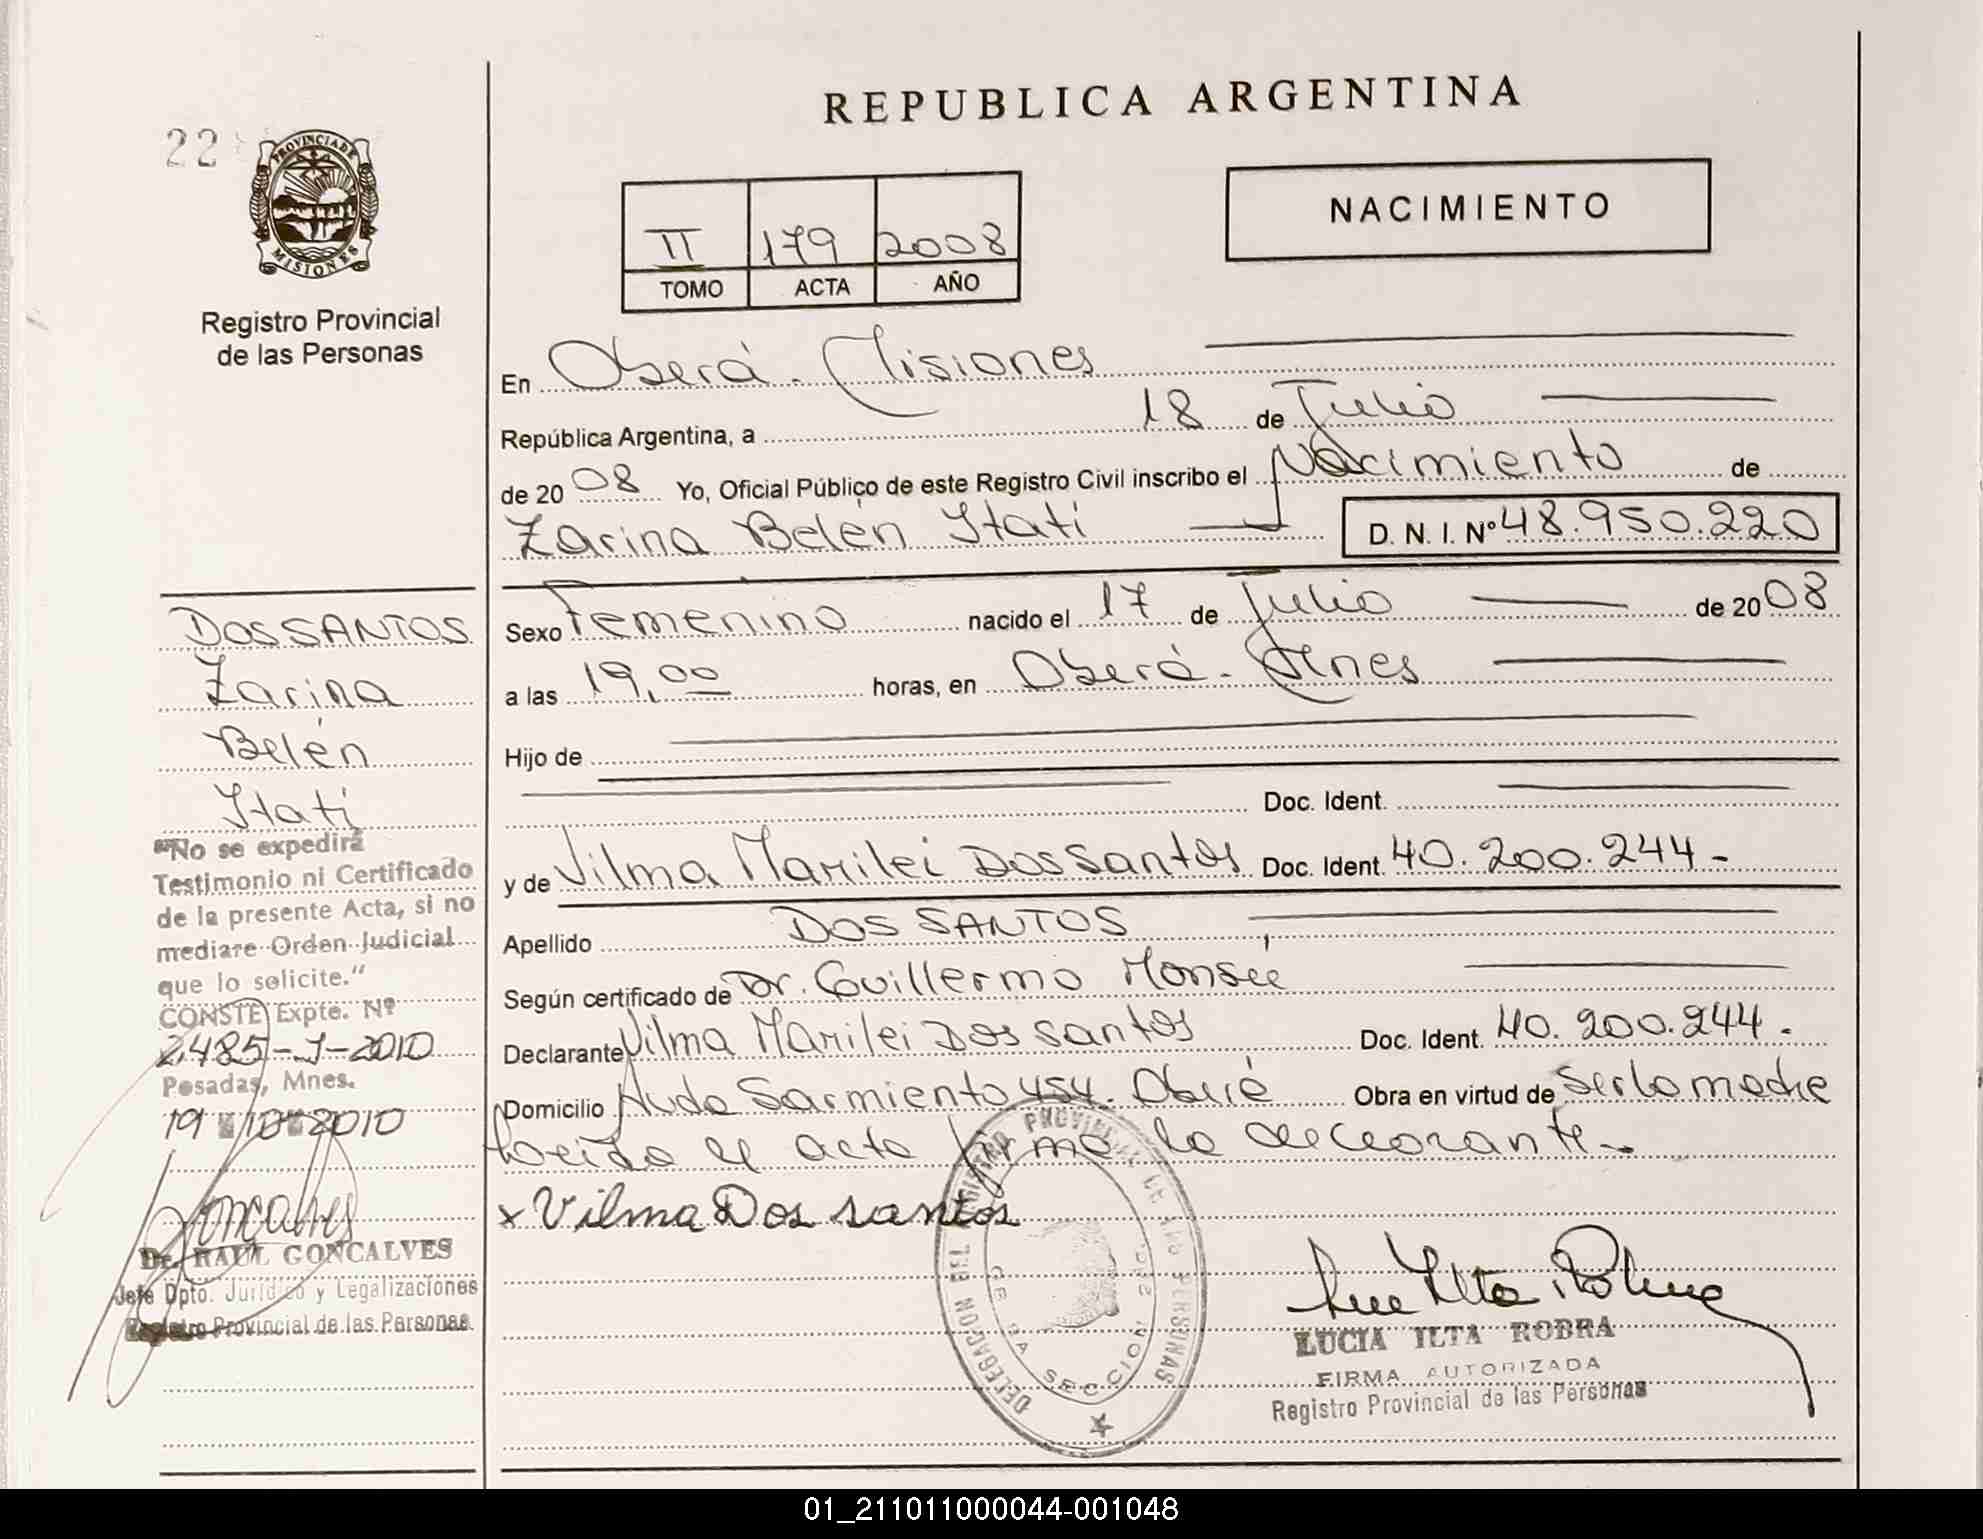 REPUBLICA ARGENTINA
22
PROVINCIA DE
MISIONES
Registro Provincial
de las Personas
II 179 2008
TOMO ACTA AÑO
NACIMIENTO
En Oberá - Misiones
República Argentina, a 18 de Julio
de 20 08 Yo, Oficial Público de este Registro Civil inscribo el Nacimiento de
Zarina Belén Itatí D. N. I. Nº 48.950.220
Sexo Femenino nacido el 17 de Julio de 20 08
a las 19,00 horas, en Oberá - Mnes
Hijo de
Doc. Ident.
y de Vilma Marilei Dos Santos Doc. Ident. 40.200.244 -
Apellido DOS SANTOS
Según certificado de Dr. Guillermo
Declarante Vilma Marilei Dos Santos Doc. Ident. 40.200.244.
Domicilio Avda Sarmiento 454. Oberá Obra en virtud de ser la madre
Leída el acta firma la declarante -
x Vilma Dos santos
DELEGACION DEL REGISTRO PROVINCIAL DE LAS PERSONAS
SECCION
LUCIA ILTA ROBRA
FIRMA AUTORIZADA
Registro Provincial de las Personas
DOS SANTOS
Zarina
Belén
Itatí
"No se expedirá
Testimonio ni Certificado
de la presente Acta, si no
mediare Orden Judicial
que lo solicite."
CONSTE Expte. Nº
2485-J-2010
Posadas, Mnes.
19 10 2010
Goncalves
Dr. RAUL GONCALVES
Jefe Dpto. Jurídico y Legalizaciones
Registro Provincial de las Personas
01_211011000044-001048